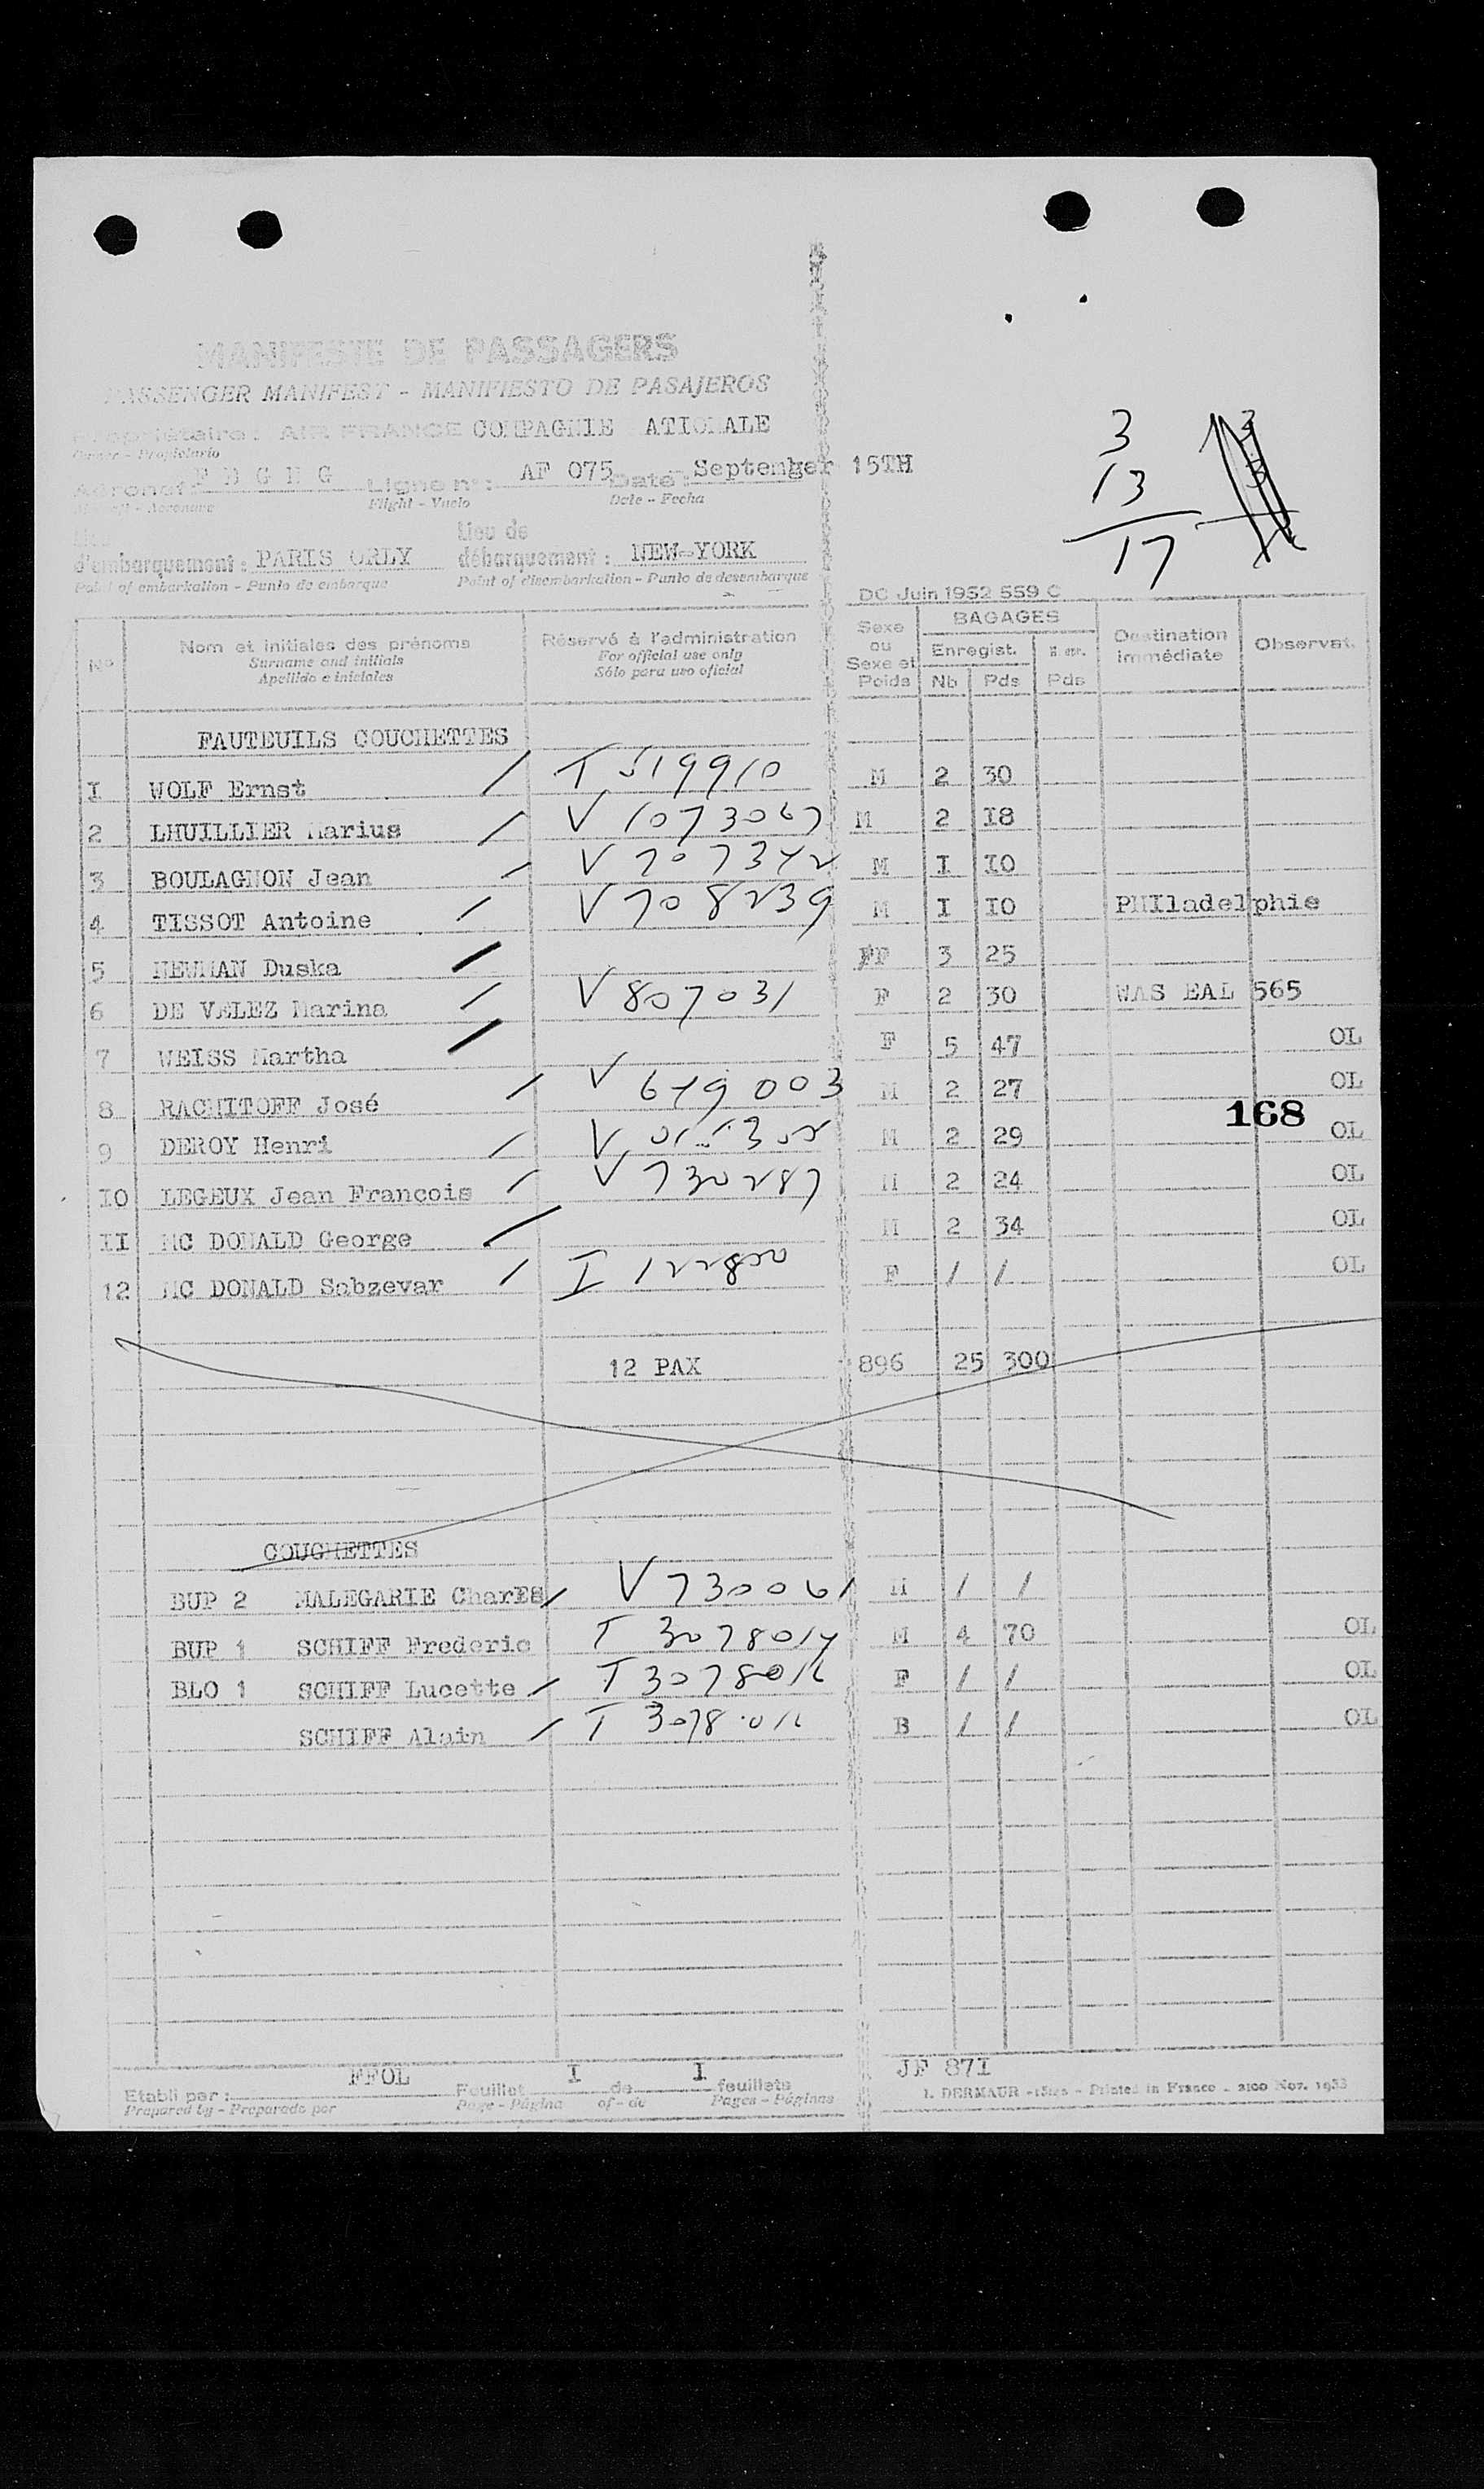 MANIFESTE DE PASSAGERS
PASSENGER MANIFEST - MANIFIESTO DE PASAJEROS
Propriétaire : AIR FRANCE COMPAGNIE ATIONALE
Owner - Propietario
Aéronef : F B G N G Ligne n° : AF 075 Date : September 15TH
Aircraft - Aeronave Flight - Vuelo Date - Fecha
3
13
17
Lieu d'embarquement : PARIS ORLY Lieu de débarquement : NEW-YORK
Point of embarkation - Punto de embarque Point of disembarkation - Punto de desembarque
DC Juin 1952 559 C
N° Nom et initiales des prénoms Réservé à l'administration Sexe ou Sexe et Poids BAGAGES Enregist. Nb Pds N. enr. Pds Destination immédiate Observat.
Surname and initials For official use only
Apellido e iniciales Sólo para uso oficial
FAUTEUILS COUCHETTES
I WOLF Ernst / T 519910 M 2 30
2 LHUILLIER Marius / V 1073067 M 2 I8
3 BOULAGNON Jean / V 707342 M I IO
4 TISSOT Antoine / V 708239 M I IO PHIladelphie
5 NEWMAN Duska / FF 3 25
6 DE VELEZ Marina / V 807031 F 2 30 WAS EAL 565
7 WEISS Martha / F 5 47 OL
8 RACHITOFF José / V 679003 M 2 27 OL
168
9 DEROY Henri / V M 2 29 OL
IO LEGEUX Jean François / V 730287 M 2 24 OL
II MC DONALD George / M 2 34 OL
12 MC DONALD Sabzevar / I 122800 F / / OL
12 PAX 896 25 300
COUCHETTES
BUP 2 MALEGARIE CharEs / V 730061 M / /
BUP 1 SCHIFF Frederic T 3078014 M 4 70 OL
BLO 1 SCHIFF Lucette / T 3078016 F / / OL
SCHIFF Alain / T 3078016 B / / OL
Etabli par : FFOL Feuillet I de I feuillets JF 87I
Prepared by - Preparado por Page - Página of - de Pages - Páginas
Printed in France - 2100 Nov. 1953